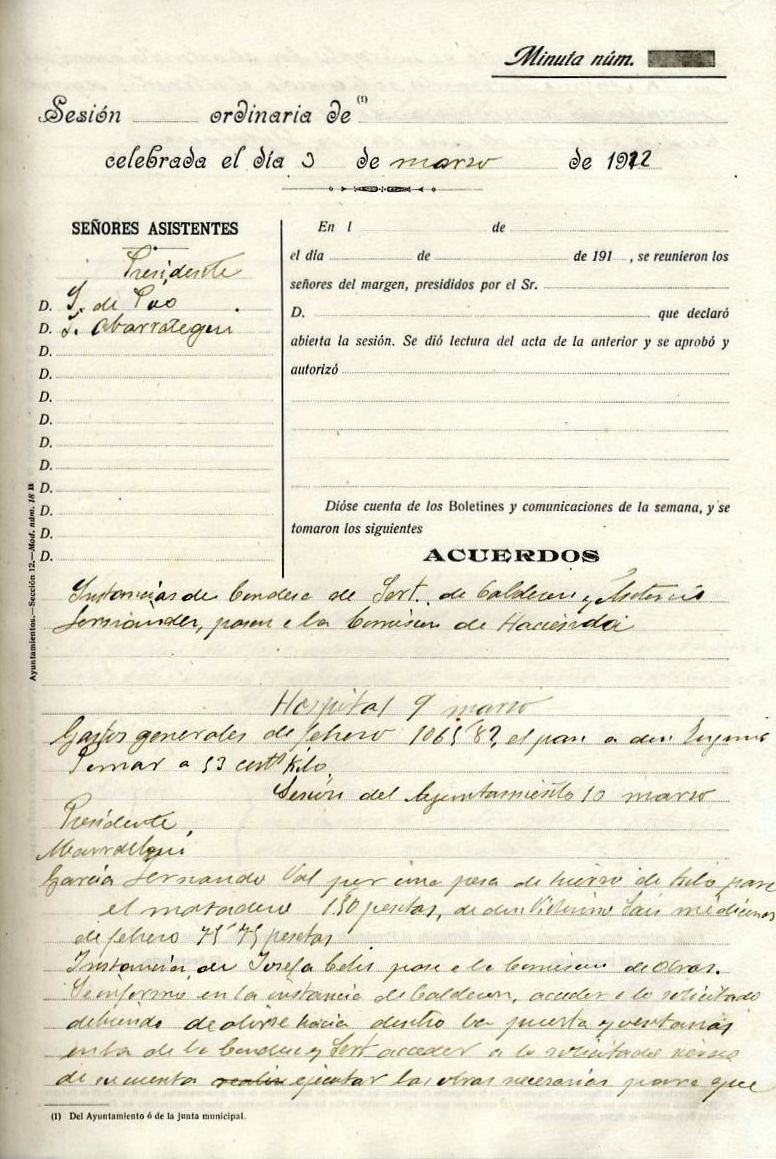 Minuta núm.
Sesión ordinaria de (1)
celebrada el día 3 de marzo de 1912
SEÑORES ASISTENTES
Presidente
D. S. de Pao
D. L. Abarrategui
D.
D.
D.
D.
D.
D.
D.
D.
D.
D.
En l de
el dia de de 191 , se reunieron los
señores del margen, presididos por el Sr.
D. que declaró
abierta la sesión. Se dió lectura del acta de la anterior y se aprobó y
autorizó
Dióse cuenta de los Boletines y comunicaciones de la semana, y se
tomaron los siguientes
ACUERDOS
Instancias de Condesa de Sert. de Calderon y Antonio
Fernández, pasen a la Comision de Hacienda
Hospital 9 marzo
Gastos generales de febrero 1065'82, el pan a don Eugenio
Pemar a 53 centº kilo.
Sesión del Ayuntamiento 10 marzo
Presidente
Abarrategui
García Fernando Val por una pesa de hierro de kilo para
el matadero 1'50 pesetas, de don Victorino Sais medicinas
de febrero 75'75 pesetas
Instancia de Josefa Celis pase a la Comision de Obras.
Se informe en la instancia de Calderon, acceder a lo solicitado
debiendo de abrirse hacia dentro la puerta y ventanas
en la de la Condesa Sert acceder a lo solicitado
de su cuenta ejecutar las obras necesarias para que
Ayuntamientos.—Sección 12.—Mod. núm. 18 B
(1) Del Ayuntamiento ó de la junta municipal.